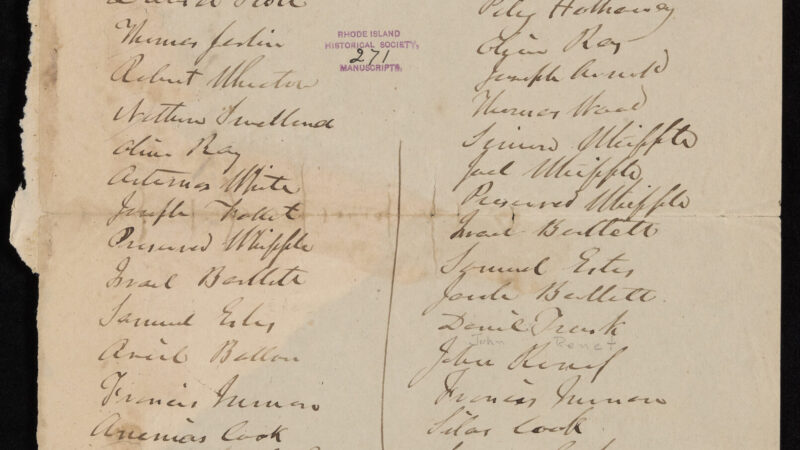 Thomas
Robert Wheaton
Nathan
Olive Ray
Artemas White
Joseph
Preserved Whipple
Israel Bartlett
Samuel Estes
Ballou
Francis Inman
Ananias Cook
RHODE ISLAND
HISTORICAL SOCIETY,
271
MANUSCRIPTS.
Hathaway
Ray
Joseph Arnold
Thomas Wood
Simon Whipple
Joel Whipple
Preserved Whipple
Israel Bartlett
Samuel Estes
Bartlett
Trask
John Renef
John Renef
Francis Inman
Silas Cook